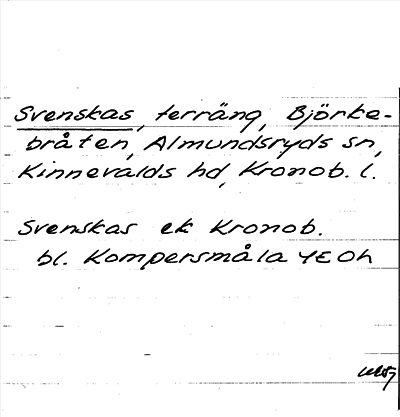 Svenskas, terräng, Björke-
bråten, Almundsryds sn,
Kinnevalds hd, Kronob. l.
Svenskas ek Kronob.
bl. Kompersmåla 4E0h